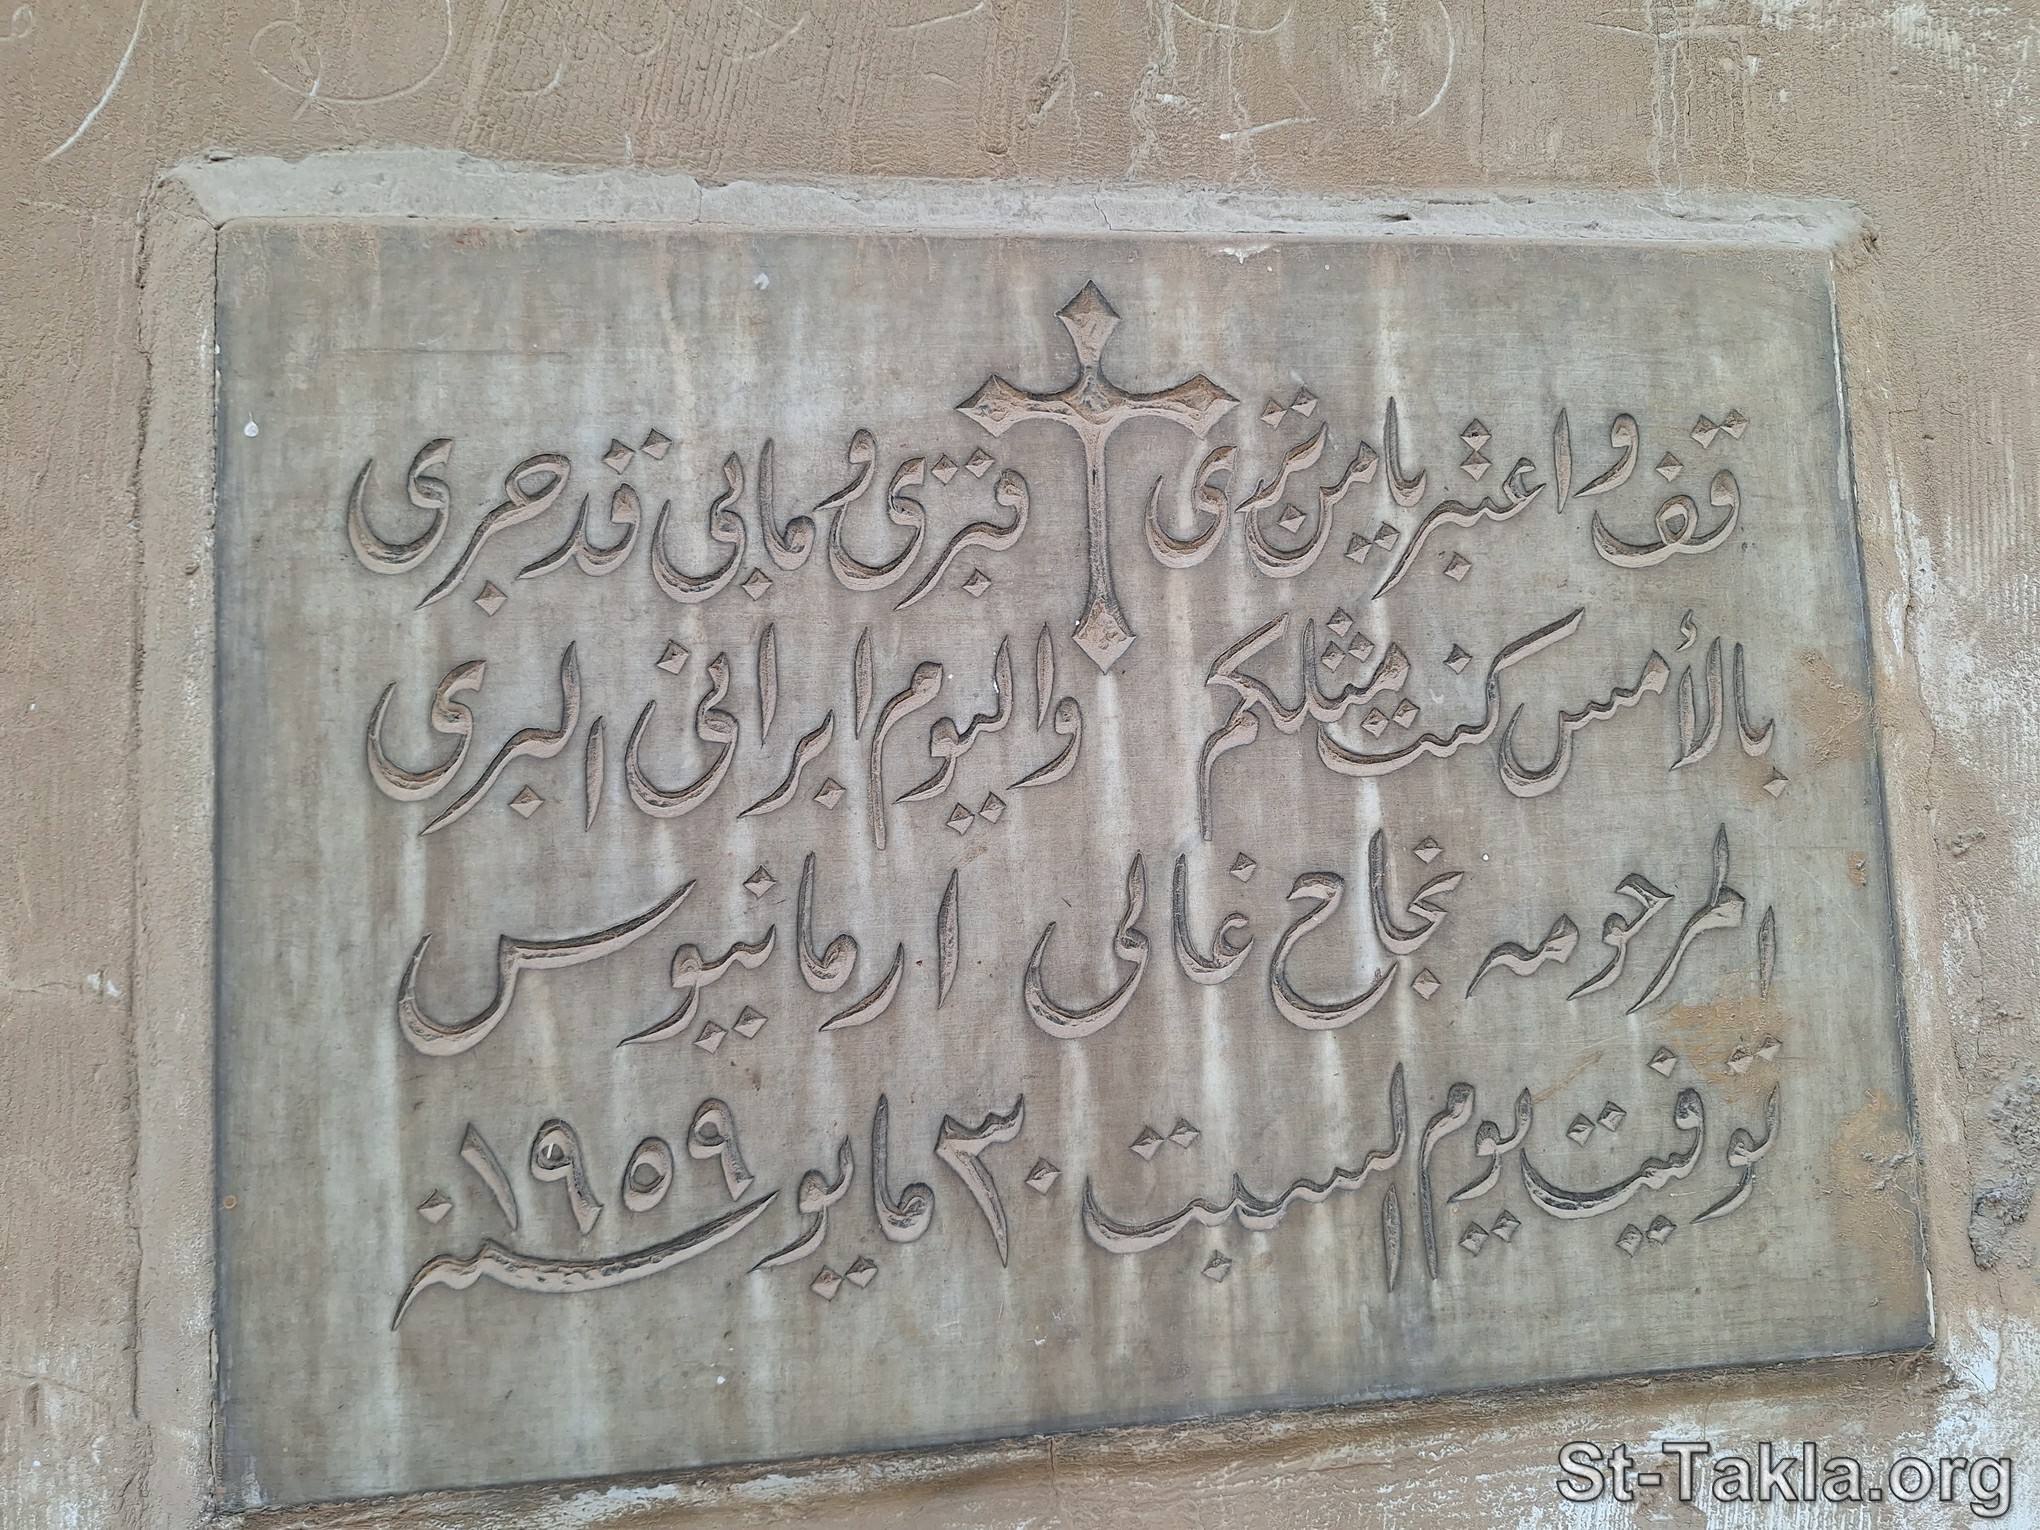 قف واعتبر يا من تري قبري وما بي قد جري
بالأمس كنت مثلكم واليوم ابراني البري
المرحومه نجاح غالي ارمانيوس
توفيت يوم السبت ٣٠ مايو سنه ١٩٥٩
St-Takla.org